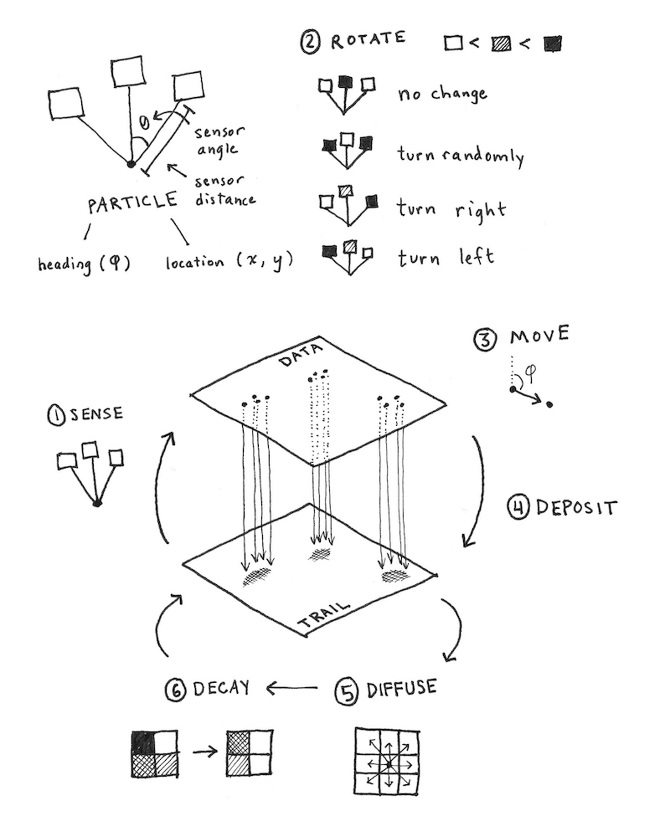 ② ROTATE □ < ▨ < ■
no change
turn randomly
turn right
turn left
θ
sensor
angle
sensor
distance
PARTICLE
heading (φ)
location (x, y)
③ MOVE
φ
DATA
① SENSE
④ DEPOSIT
TRAIL
⑥ DECAY
⑤ DIFFUSE